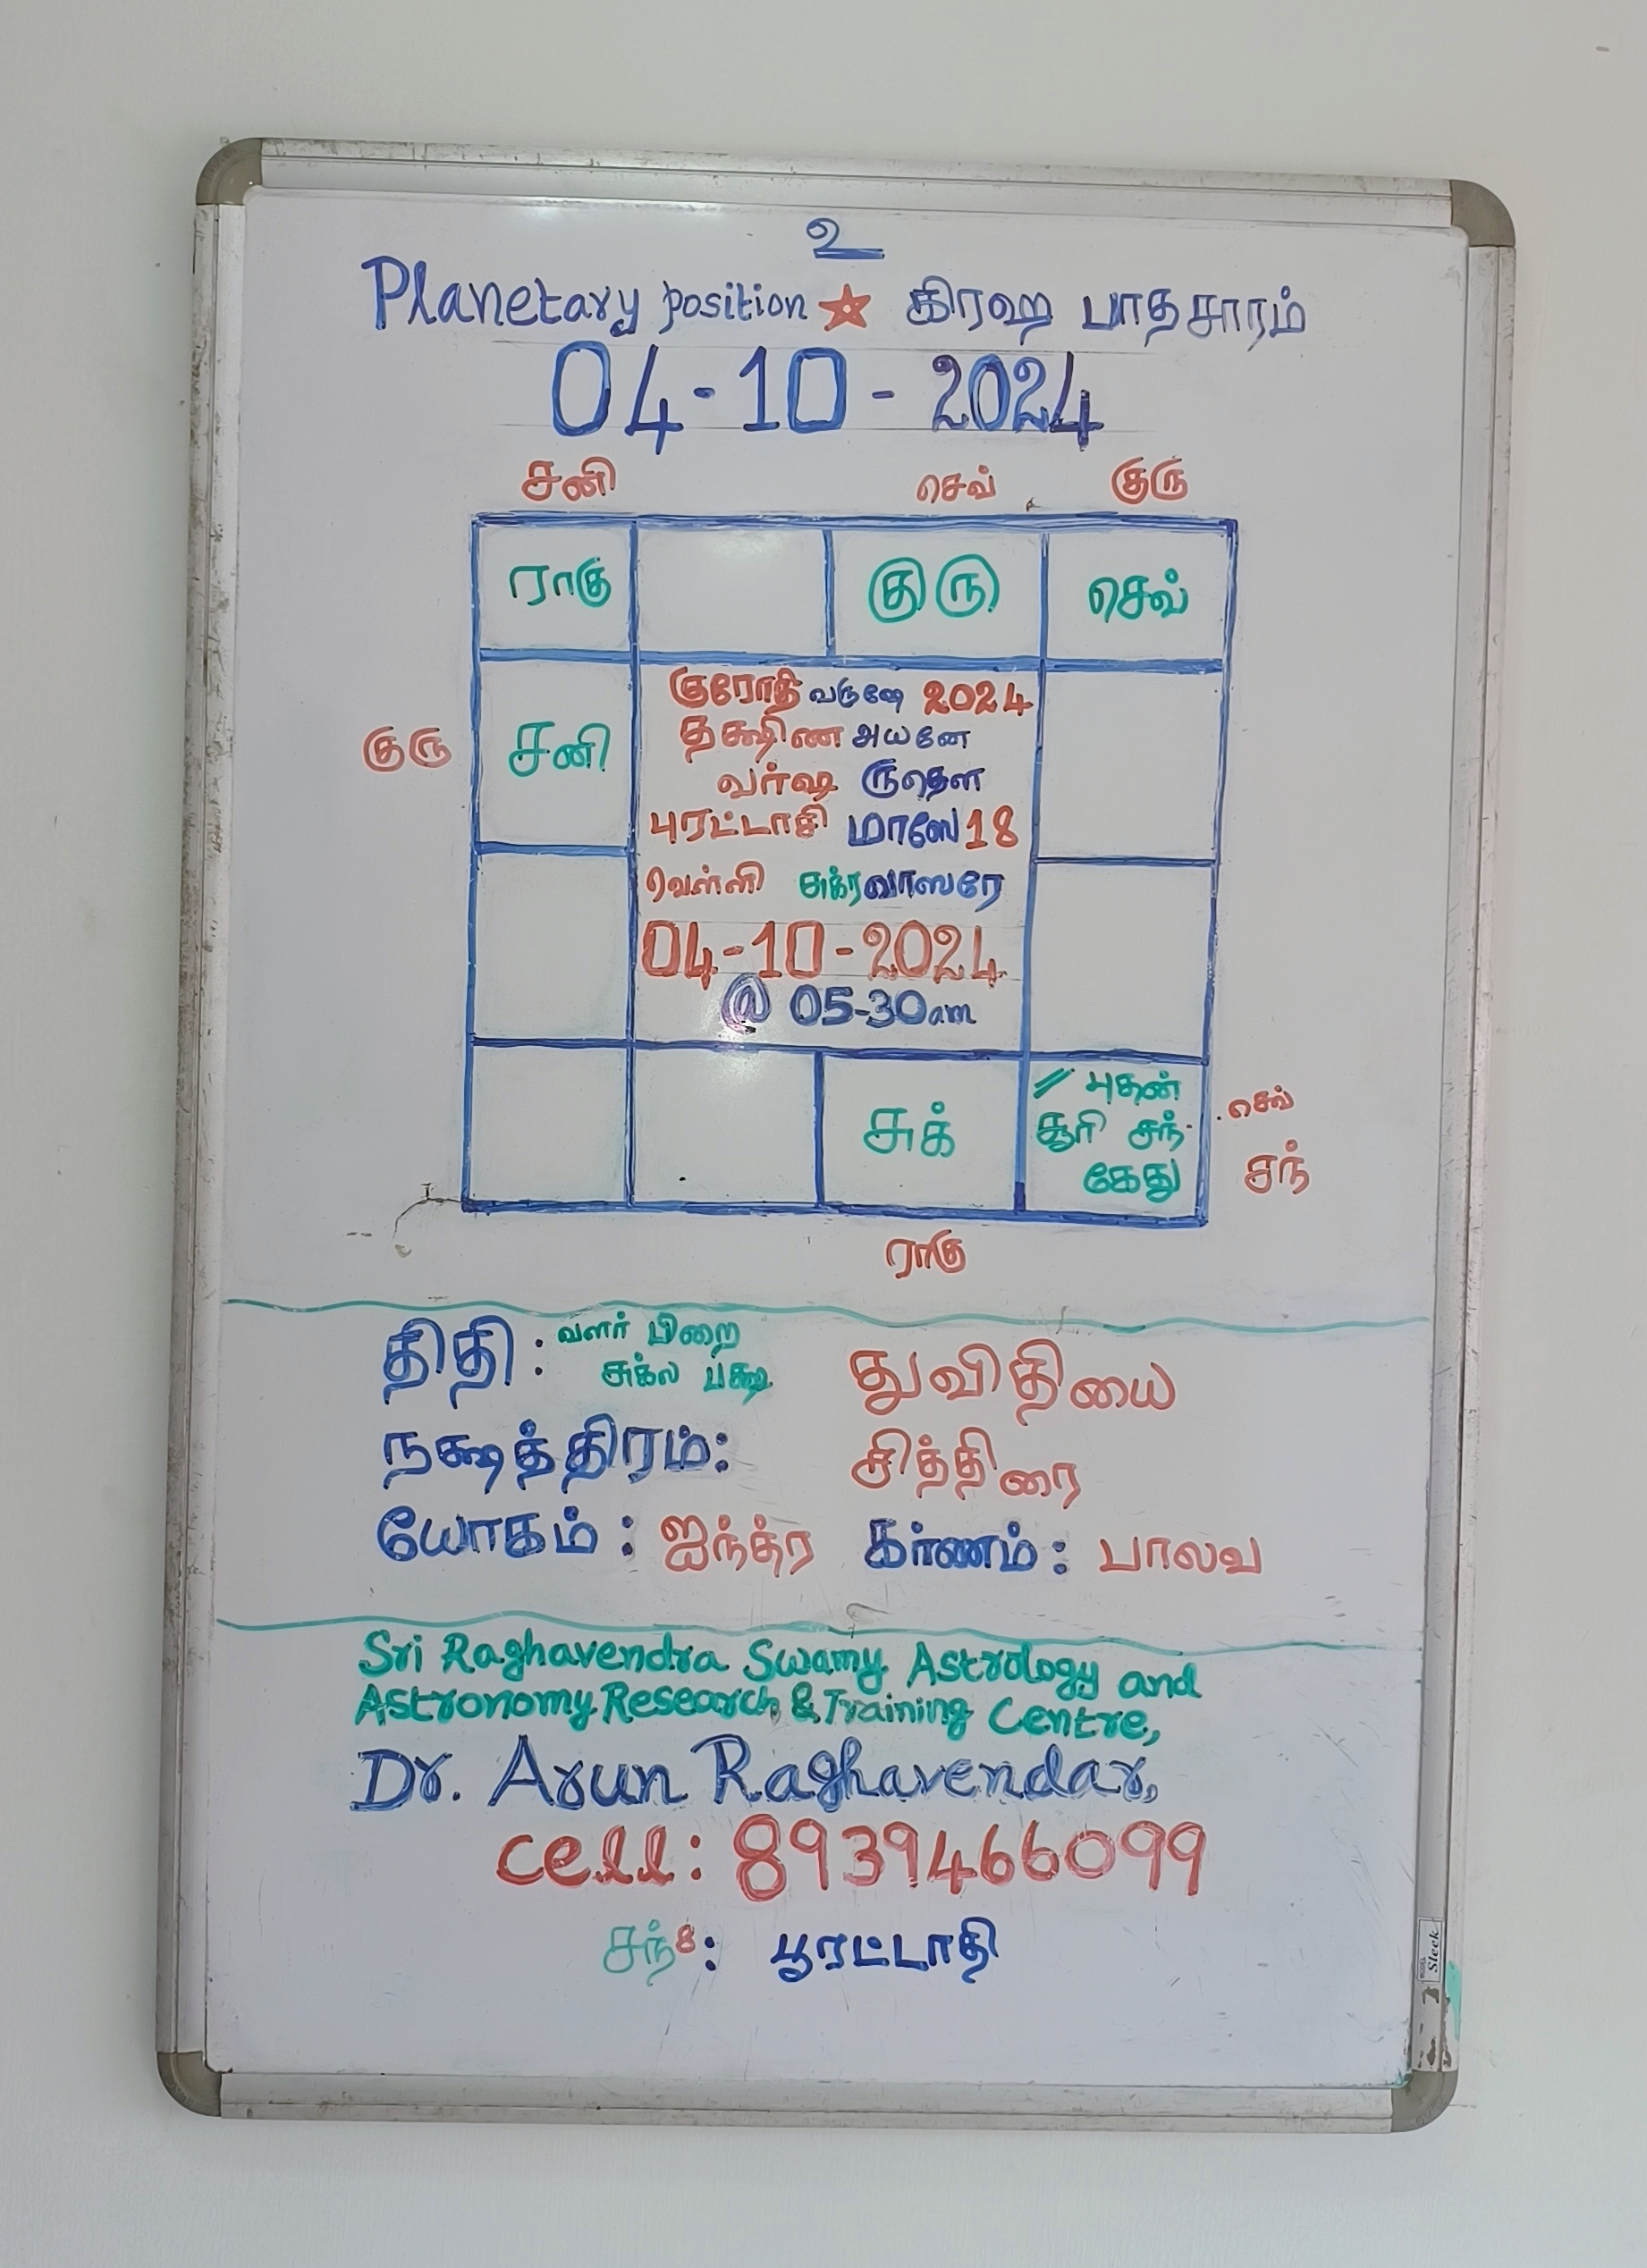 உ
Planetary position ☆ கிரஹ பாதசாரம்
04-10-2024
சனி செவ் குரு
ராகு குரு செவ்
குரோதி வருஷே 2024
தக்ஷிண அயனே
குரு சனி வர்ஷ ருதௌ
புரட்டாசி மாஸே 18
வெள்ளி சுக்ரவாஸரே
04-10-2024
@ 05-30am
சுக் // புதன்
சூரி சந்
கேது
செவ்
சந்
ராகு
திதி: வளர் பிறை
சுக்ல பக்ஷ துவிதியை
நக்ஷத்திரம்: சித்திரை
யோகம்: ஐந்த்ர கர்ணம்: பாலவ
Sri Raghavendra Swamy Astrology and
Astronomy Research & Training Centre,
Dr. Arun Raghavendar,
cell: 8939466099
சந் 8: பூரட்டாதி
Sleek